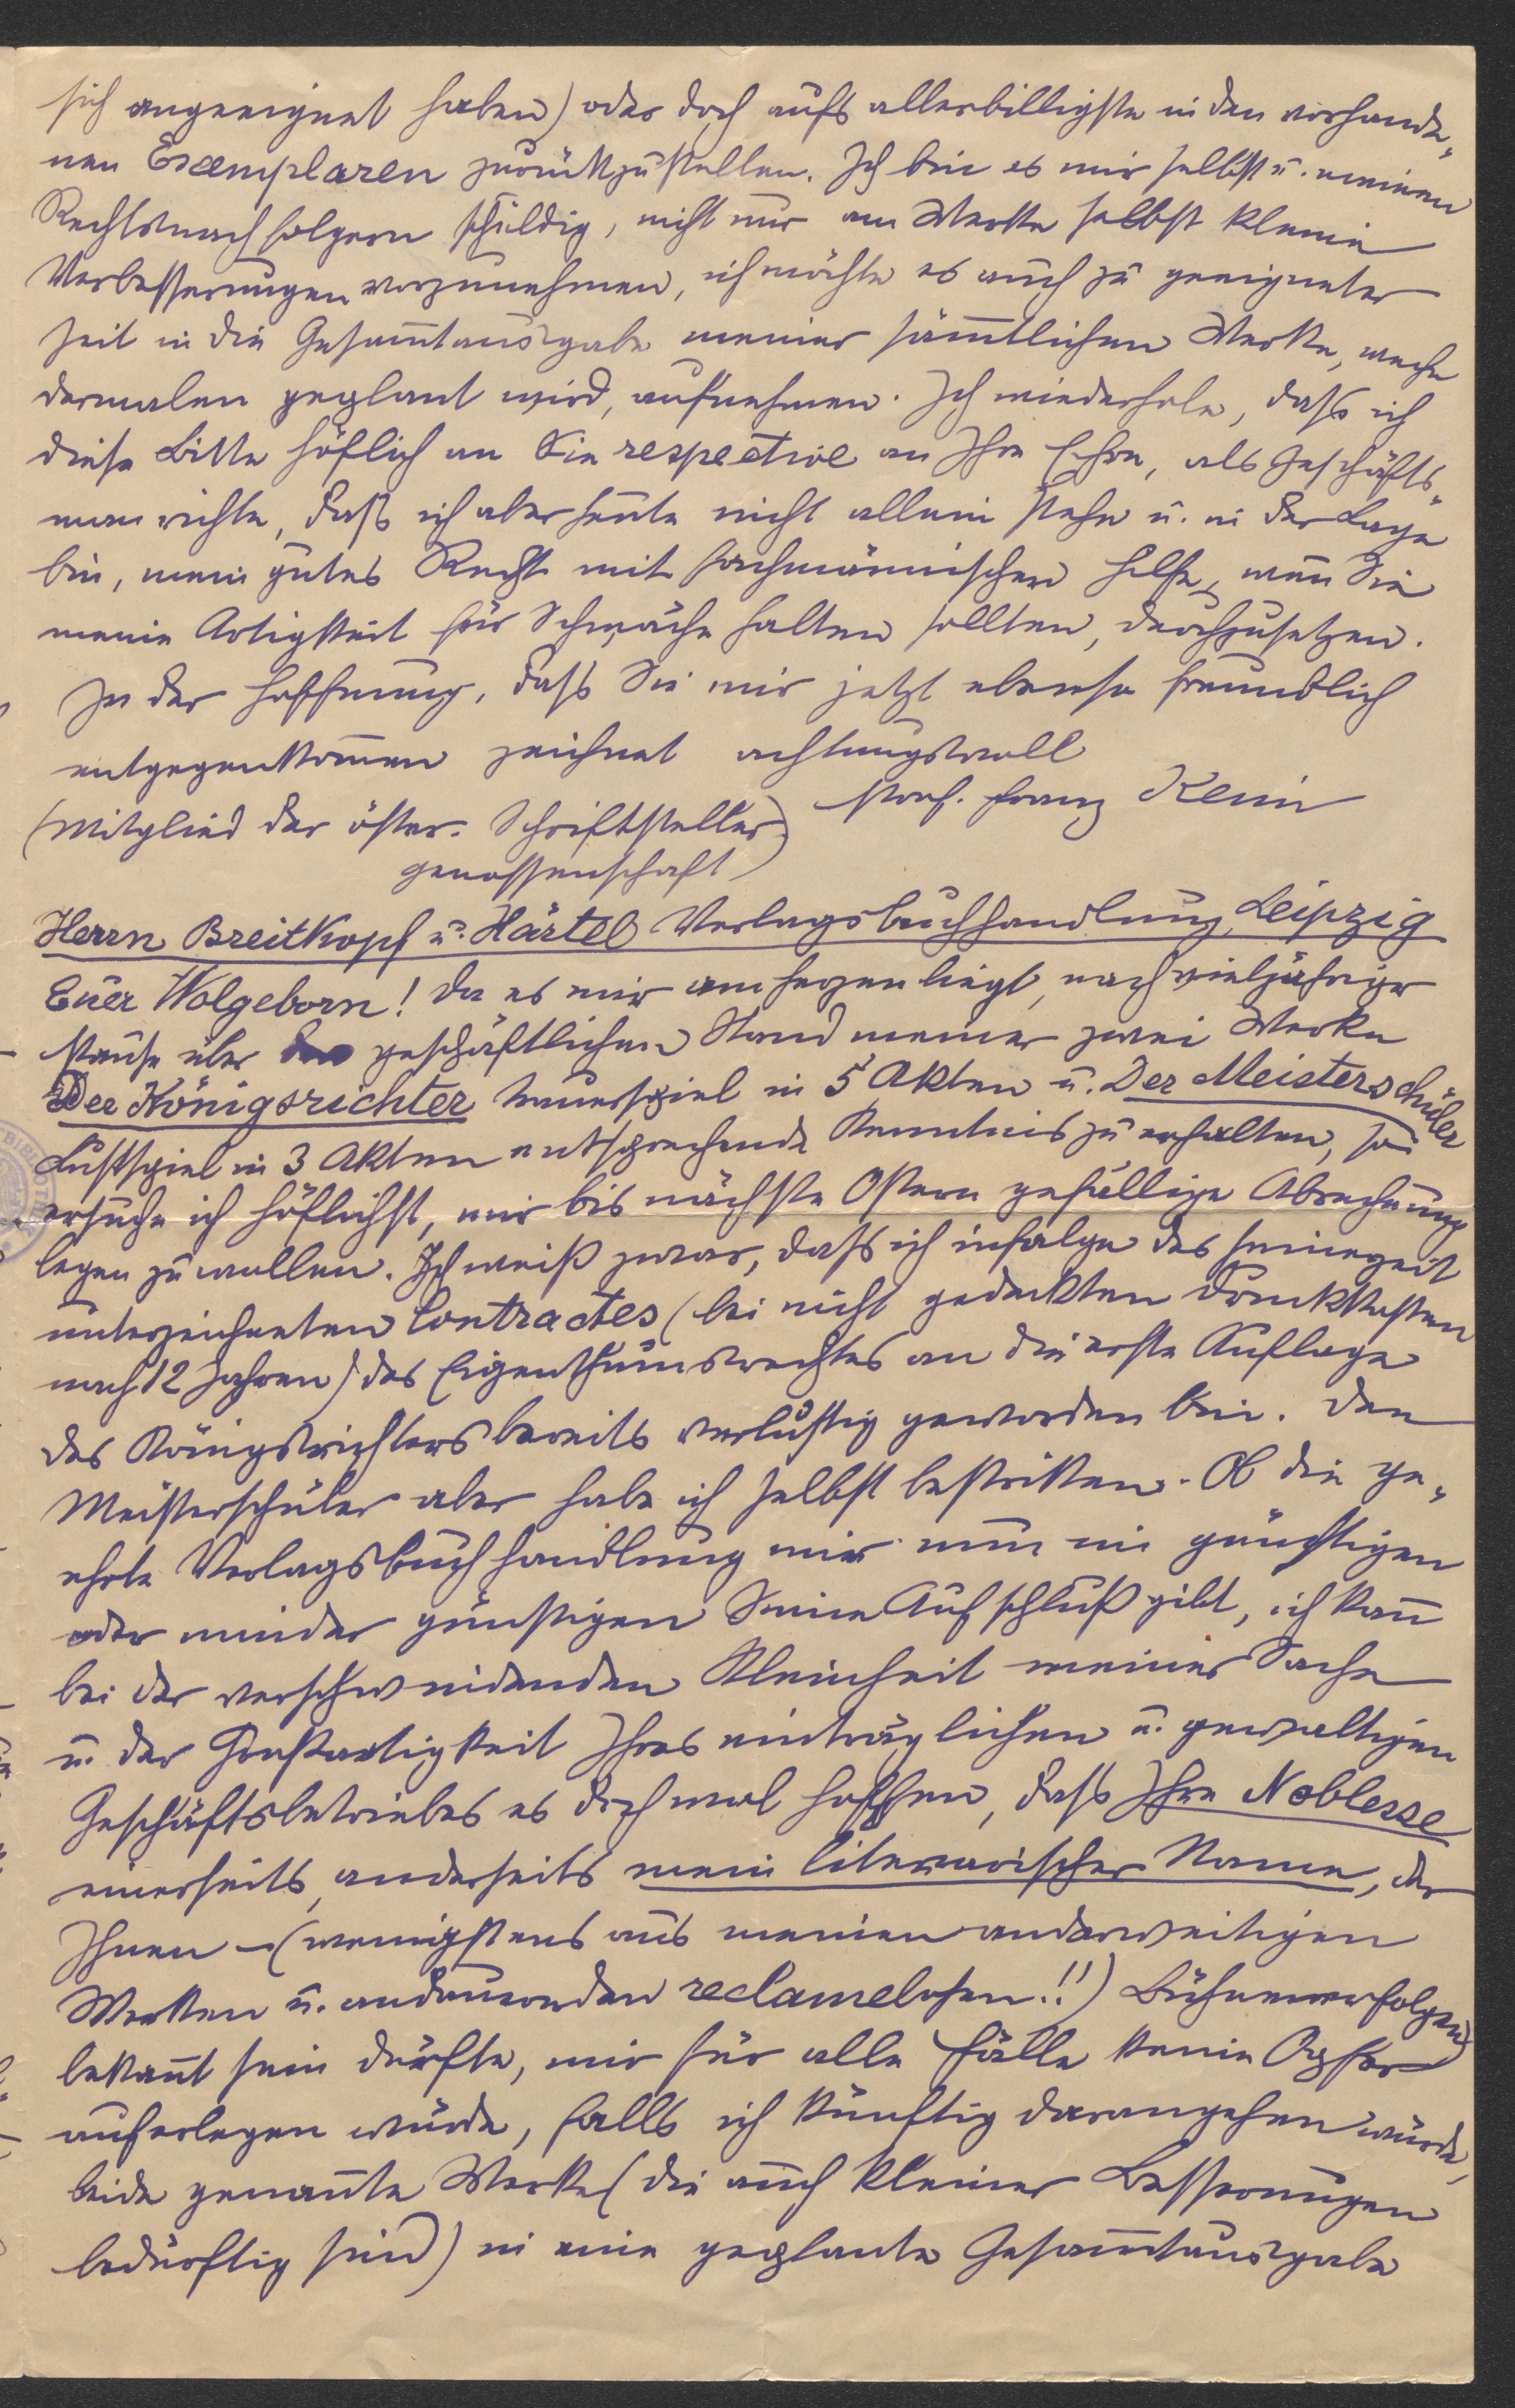 sich angeeignet haben) oder doch aufs allerbilligste in den vorhande-
nen Exemplaren zurückzustellen. Ich bin es mir selbst u. meinen
Rechtsnachfolgern schuldig, nicht nur am Werke selbst kleine
Verbesserungen vorzunehmen, ich möchte es auch zu geeigneter
Zeit in die Gesam̄tausgabe meiner säm̄tlichen Werke, welche
dermalen geplant wird, aufnehmen. Ich wiederhole, dass ich
diese Bitte höflich an Sie respective an Ihre Ehre, als Geschäfts-
man richte, daß ich aber heute nicht allein stehe u. in der Lage
bin, mein gutes Recht mit fachmännischer Hilfe, wen̄ Sie
meine Artigkeit für Schwäche halten sollten, durchzusetzen.
In der Hoffnung, dass Sie mir jetzt ebenso freundlich
entgegenkom̄en zeichnet achtungsvoll
Prof. Franz Keim
(Mitglied der öster. Schriftsteller
genossenschaft)
Herrn Breitkopf u. Härtel Verlagsbuchhandlung, Leipzig
Euer Wolgeborn! Da es mir am Herzen liegt, nach vieljähriger
Pause über geschäftlichen Stand meiner zwei Werke
Der Königsrichter Trauerspiel in 5 Akten u. Der Meisterschüler
Lustspiel in 3 Akten entsprechende Kenntnis zu erhalten, so
ersuche ich höflichst, mir bis nächste Ostern gefällige Abrechnung
legen zu wollen. Ich weiß zwar, dass ich infolge des seinerzeit
unterzeichneten Contractes (bei nicht gedeckten Druckkosten
nach 12 Jahren) des Eigenthumsrechtes an die erste Auflage
des Königsrichters bereits verlustig geworden bin. Den
Meisterschüler aber habe ich selbst bestritten. Ob die ge-
ehrte Verlagsbuchhandlung mir nun im günstigen
oder minder günstigen Sinne Aufschluß gibt, ich kan̄
bei der verschwindenden Kleinheit meiner Sache
u. der Großartigkeit Ihres einträglichen u. gewaltigen
Geschäftsbetriebes es doch wol hoffen, dass Ihre Noblesse
einerseits, anderseits mein literarischer Name, der
Ihnen – (wenigstens aus meinen anderweitigen
Werken u. andauernden reclamelosen!!) Bühnenerfolgen
bekan̄t sein dürfte, mir für alle Fälle keine Opfer
auferlegen würde, falls ich künftig darangehen würde,
beide genan̄te Werke (die auch kleiner Besserungen
bedürftig sind) in eine geplante Gesam̄tausgabe